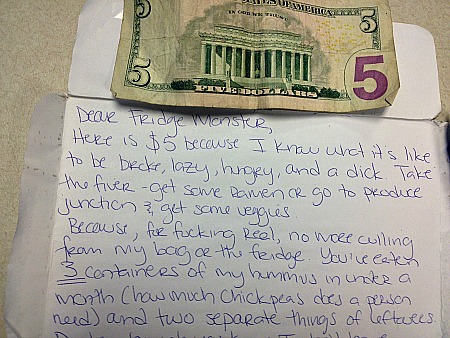 STATES OF AMERICA
IN GOD WE TRUST
5
5
5
FIVE DOLLARS
Dear Fridge Monster,
Here is $5 because I know what it's like
to be broke, lazy, hungry, and a dick. Take
the fiver - get some Ramen or go to produce
junction & get some veggies.
Because, for fucking Reel, no more culling
from my bag or the fridge. You've eaten
3 containers of my hummus in under a
month (how much chickpeas does a person
need) and two separate things of leftovers.